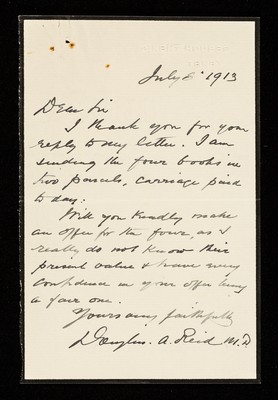 July 8 1913
Dear Sir
I thank you for your
reply to my letter. I am
sending the four books in
two parcels, carriage paid
to day.
Will you kindly make
an offer for the four, as I
really do not know their
present value & have every
confidence in your offer being
a fair one.
Yours very faithfully
Douglas. A. Reid M.D.